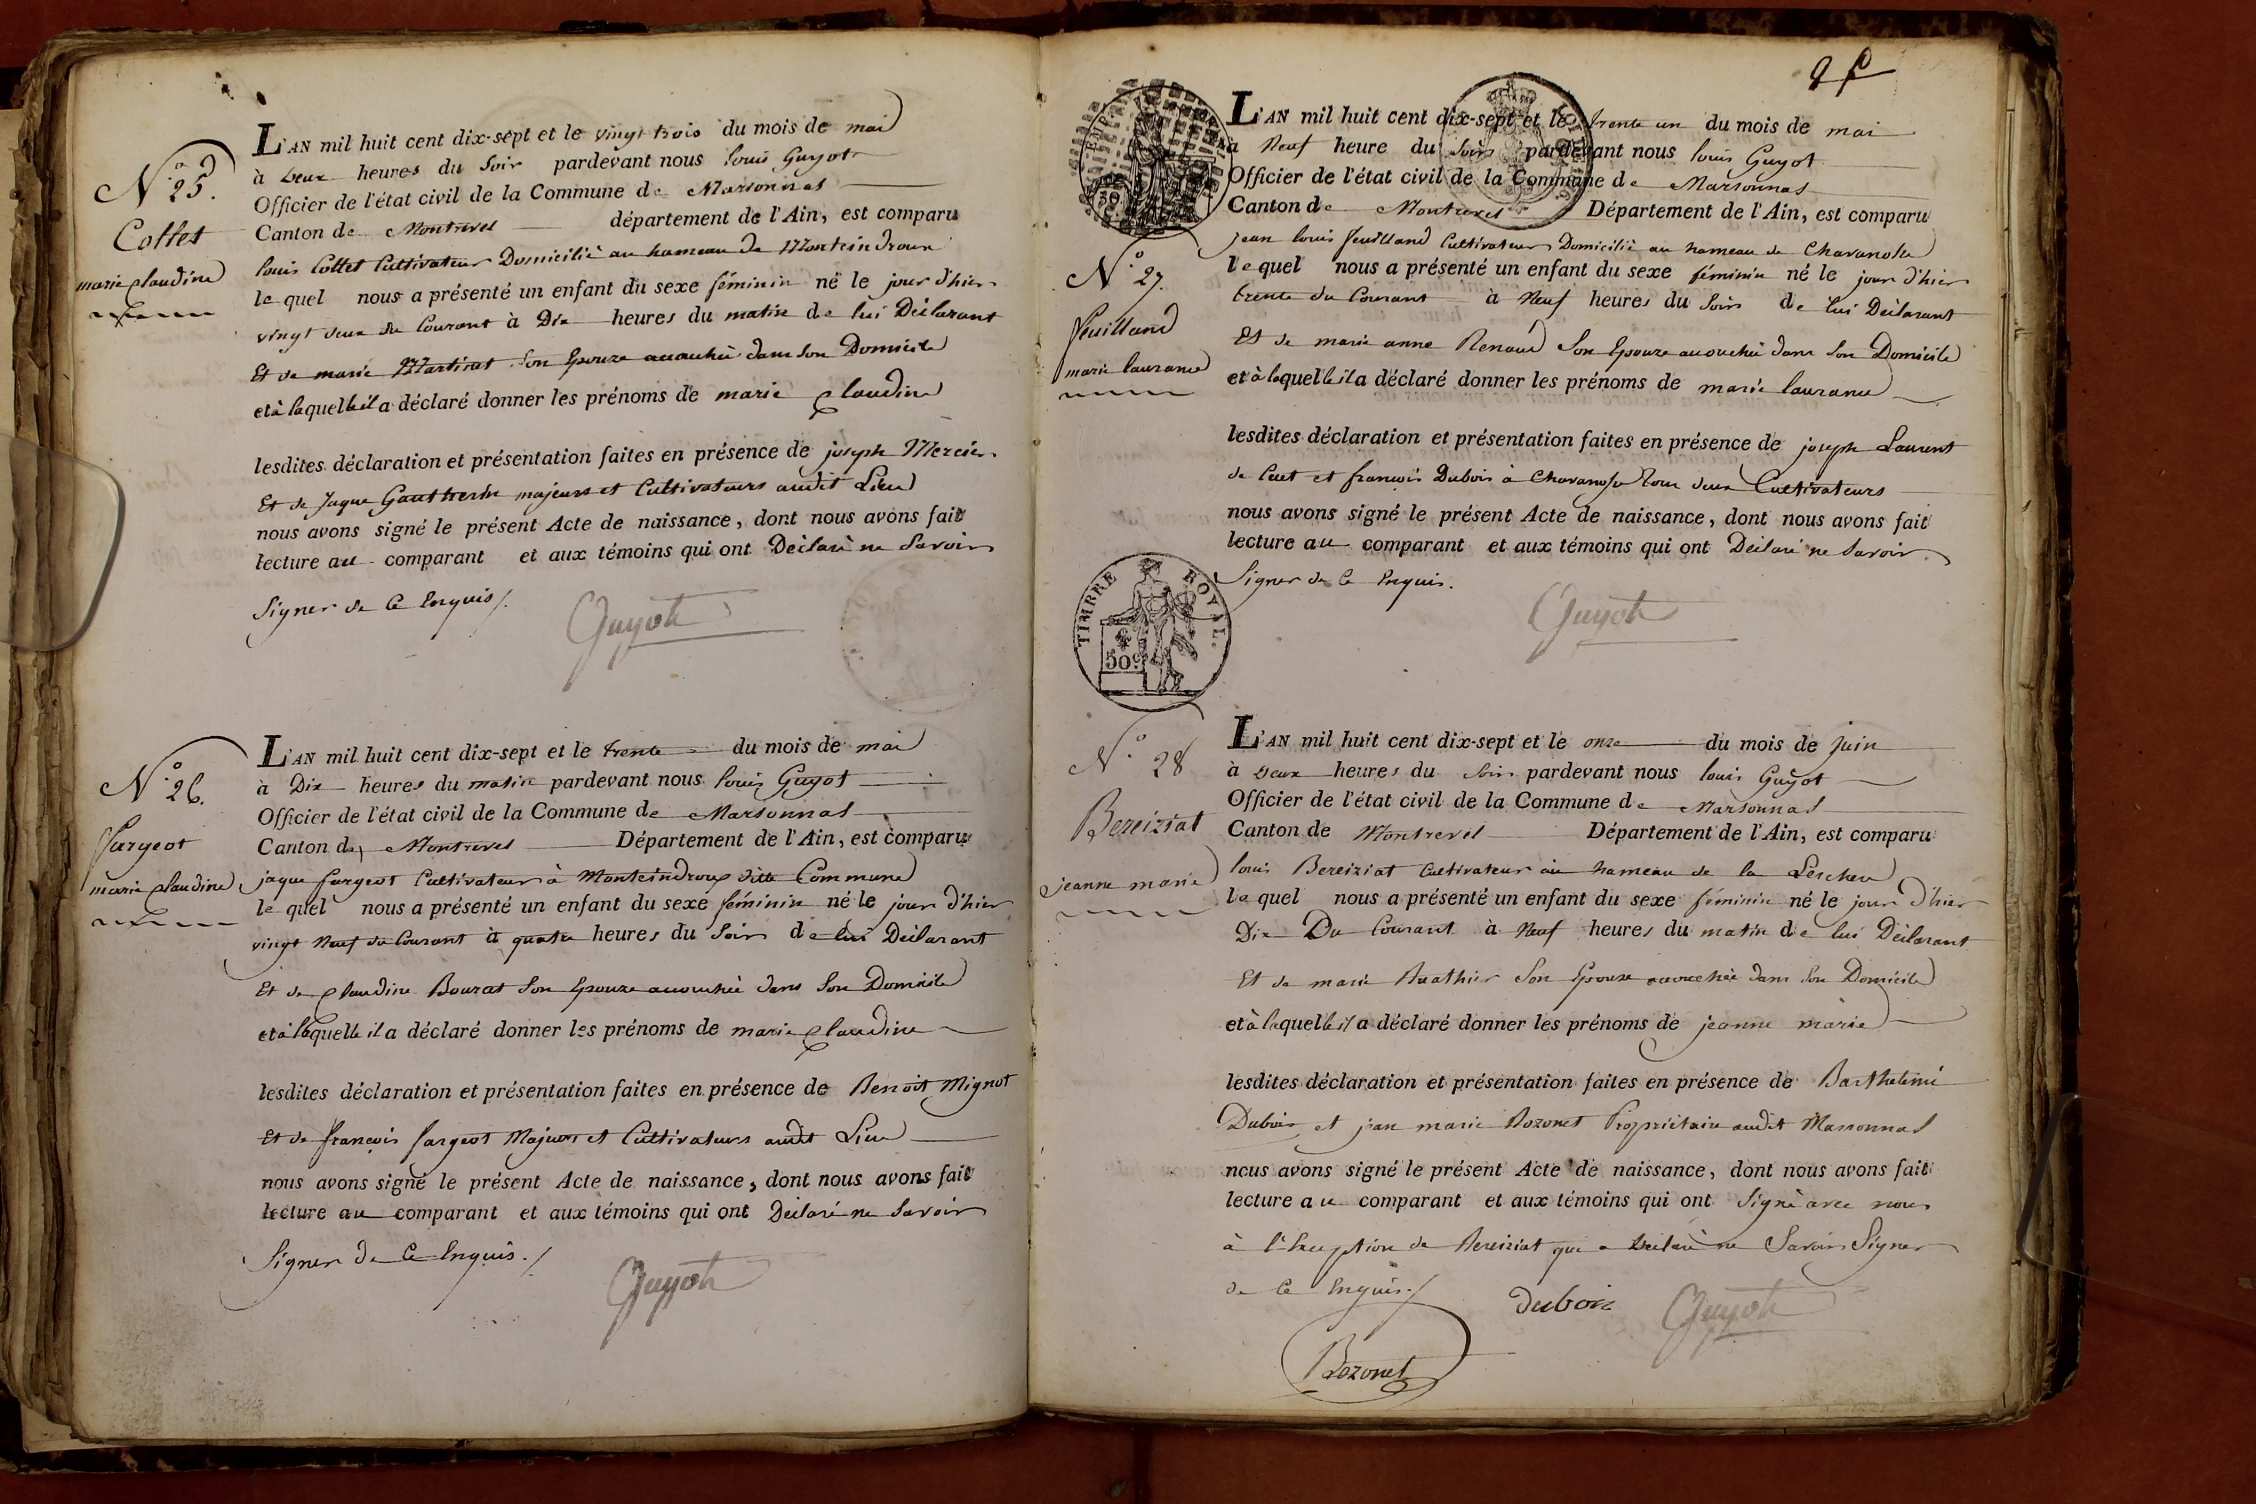 N.o 25.
Collet
marie Claudine
L'AN mil huit cent dix-sept et le vingt trois du mois de mai
à Deux heures du Soir pardevant nous louis Guyot
Officier de l'état civil de la Commune de Marsonnas
Canton de Montrevel département de l'Ain, est comparu
louis Collet Cultivateur Domicilié au hameau de Monteindroux
lequel nous a présenté un enfant du sexe féminin né le jour d'hier
vingt deux du Courant à Dix heures du matin de lui Déclarant
Et de marie Martinat Son Epouze accouchée dans son Domicile
et à laquelle il a déclaré donner les prénoms de marie Claudine
lesdites déclaration et présentation faites en présence de joseph Mercier
Et de Jaque Gautherin majeurs et Cultivateurs audit Lieu
nous avons signé le présent Acte de naissance, dont nous avons fait
lecture au comparant et aux témoins qui ont Déclaré ne Savoir
Signer de Ce Enquis /.
Guyot
N.o 26.
Fargeot
marie Claudine
L'AN mil huit cent dix-sept et le trente du mois de mai
à Dix heures du matin pardevant nous louis Guyot
Officier de l'état civil de la Commune de Marsonnas
Canton de Montrevel Département de l'Ain, est comparu
jaque fargeot Cultivateur à Monteindroux ditte Commune
lequel nous a présenté un enfant du sexe féminin né le jour d'hier
vingt Neuf du Courant à quatre heures du Soir de lui Déclarant
Et de Claudine Bourat Son Epouze accouchée dans Son Domicile
et à laquelle il a déclaré donner les prénoms de marie Claudine
lesdites déclaration et présentation faites en présence de Benoit Mignot
Et de françois fargeot Majeurs et Cultivateurs audit Lieu
nous avons signé le présent Acte de naissance, dont nous avons fait
lecture au comparant et aux témoins qui ont Déclaré ne Savoir
Signer de Ce Enquis. /
Guyot
N.o 27.
feuilland
marie laurance
L'AN mil huit cent dix-sept et le trente un du mois de mai
à Neuf heure du Soir pardevant nous louis Guyot
Officier de l'état civil de la Commune de Marsonnas
Canton de Montrevel Département de l'Ain, est comparu
jean louis feuilland Cultivateur Domicilié au hameau de Chavanosse
lequel nous a présenté un enfant du sexe féminin né le jour d'hier
trente du Courant à Neuf heures du Soir de lui Déclarant
Et de marie anne Renaud Son Epouze accouchée dans Son Domicile
et à laquelle il a déclaré donner les prénoms de marie laurance
lesdites déclaration et présentation faites en présence de joseph Laurent
de Cuet et françois Dubois à Chavanosse tous deux Cultivateurs
nous avons signé le présent Acte de naissance, dont nous avons fait
lecture au comparant et aux témoins qui ont Déclaré ne Savoir
Signer de Ce Enquis.
TIMBRE ROYAL.
50c
Guyot
N.o 28
Bereiziat
jeanne marie
L'AN mil huit cent dix-sept et le onze du mois de juin
à Deux heures du Soir pardevant nous louis Guyot
Officier de l'état civil de la Commune de Marsonnas
Canton de Montrevel Département de l'Ain, est comparu
louis Bereiziat Cultivateur au hameau de la
lequel nous a présenté un enfant du sexe féminin né le jour d'hier
Dix Du Courant à Neuf heures du matin de lui Déclarant
Et de marie Buathier Son Epouse accouchée dans Son Domicile
et à laquelle il a déclaré donner les prénoms de jeanne marie
lesdites déclaration et présentation faites en présence de Barthelemi
Dubois et jean marie Bozonet Propriétaire audit Marsonnas
nous avons signé le présent Acte de naissance, dont nous avons fait
lecture au comparant et aux témoins qui ont Signé avec nous
à l'Exception de Bereiziat qui a Déclaré ne Savoir Signer
de Ce Enquis. /
dubois Guyot
Bozonet